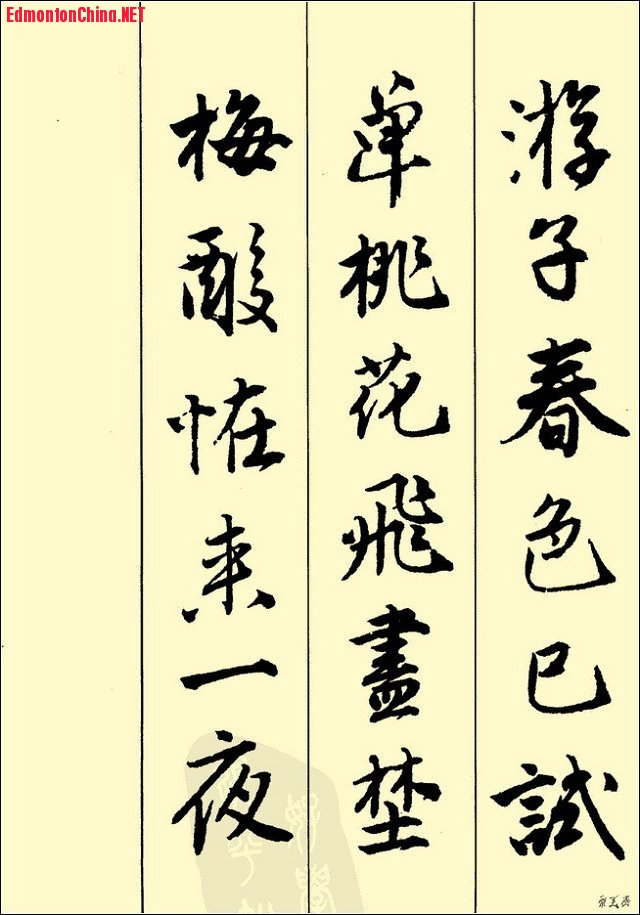 EdmontonChina.NET
游子春色已試
單桃花飛盡埜
梅酸恠来一夜